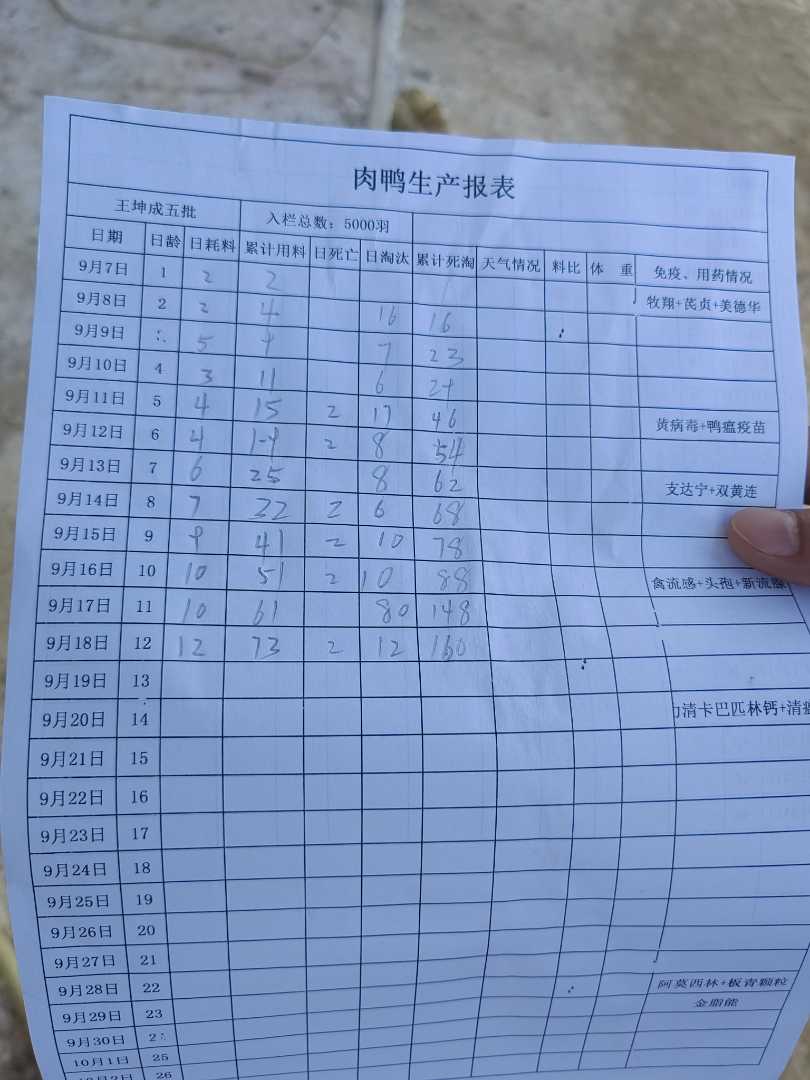 肉鸭生产报表
王坤成五批 入栏总数：5000羽
日期 日龄 日耗料 累计用料 日死亡 日淘汰 累计死淘 天气情况 料比 体 重 免疫、用药情况
9月7日 1 2 2
9月8日 2 2 4 16 16 牧翔+芪贞+美德华
9月9日 5 7 23
9月10日 4 3 11 6
9月11日 5 4 15 2 17 46 黄病毒+鸭瘟疫苗
9月12日 6 4 2 8 54
9月13日 7 6 25 8 62 支达宁+双黄连
9月14日 8 7 32 2 6 68
9月15日 9 9 41 2 10 78
9月16日 10 10 51 2 10 88 禽流感+头孢+新流感
9月17日 11 10 61 80 148
9月18日 12 12 73 2 12 160
9月19日 13
9月20日 14 清卡巴匹林钙+清瘟
9月21日 15
9月22日 16
9月23日 17
9月24日 18
9月25日 19
9月26日 20
9月27日 21
9月28日 22 阿莫西林+板青颗粒
9月29日 23 金脂能
9月30日
10月1日 25
10月2日 26